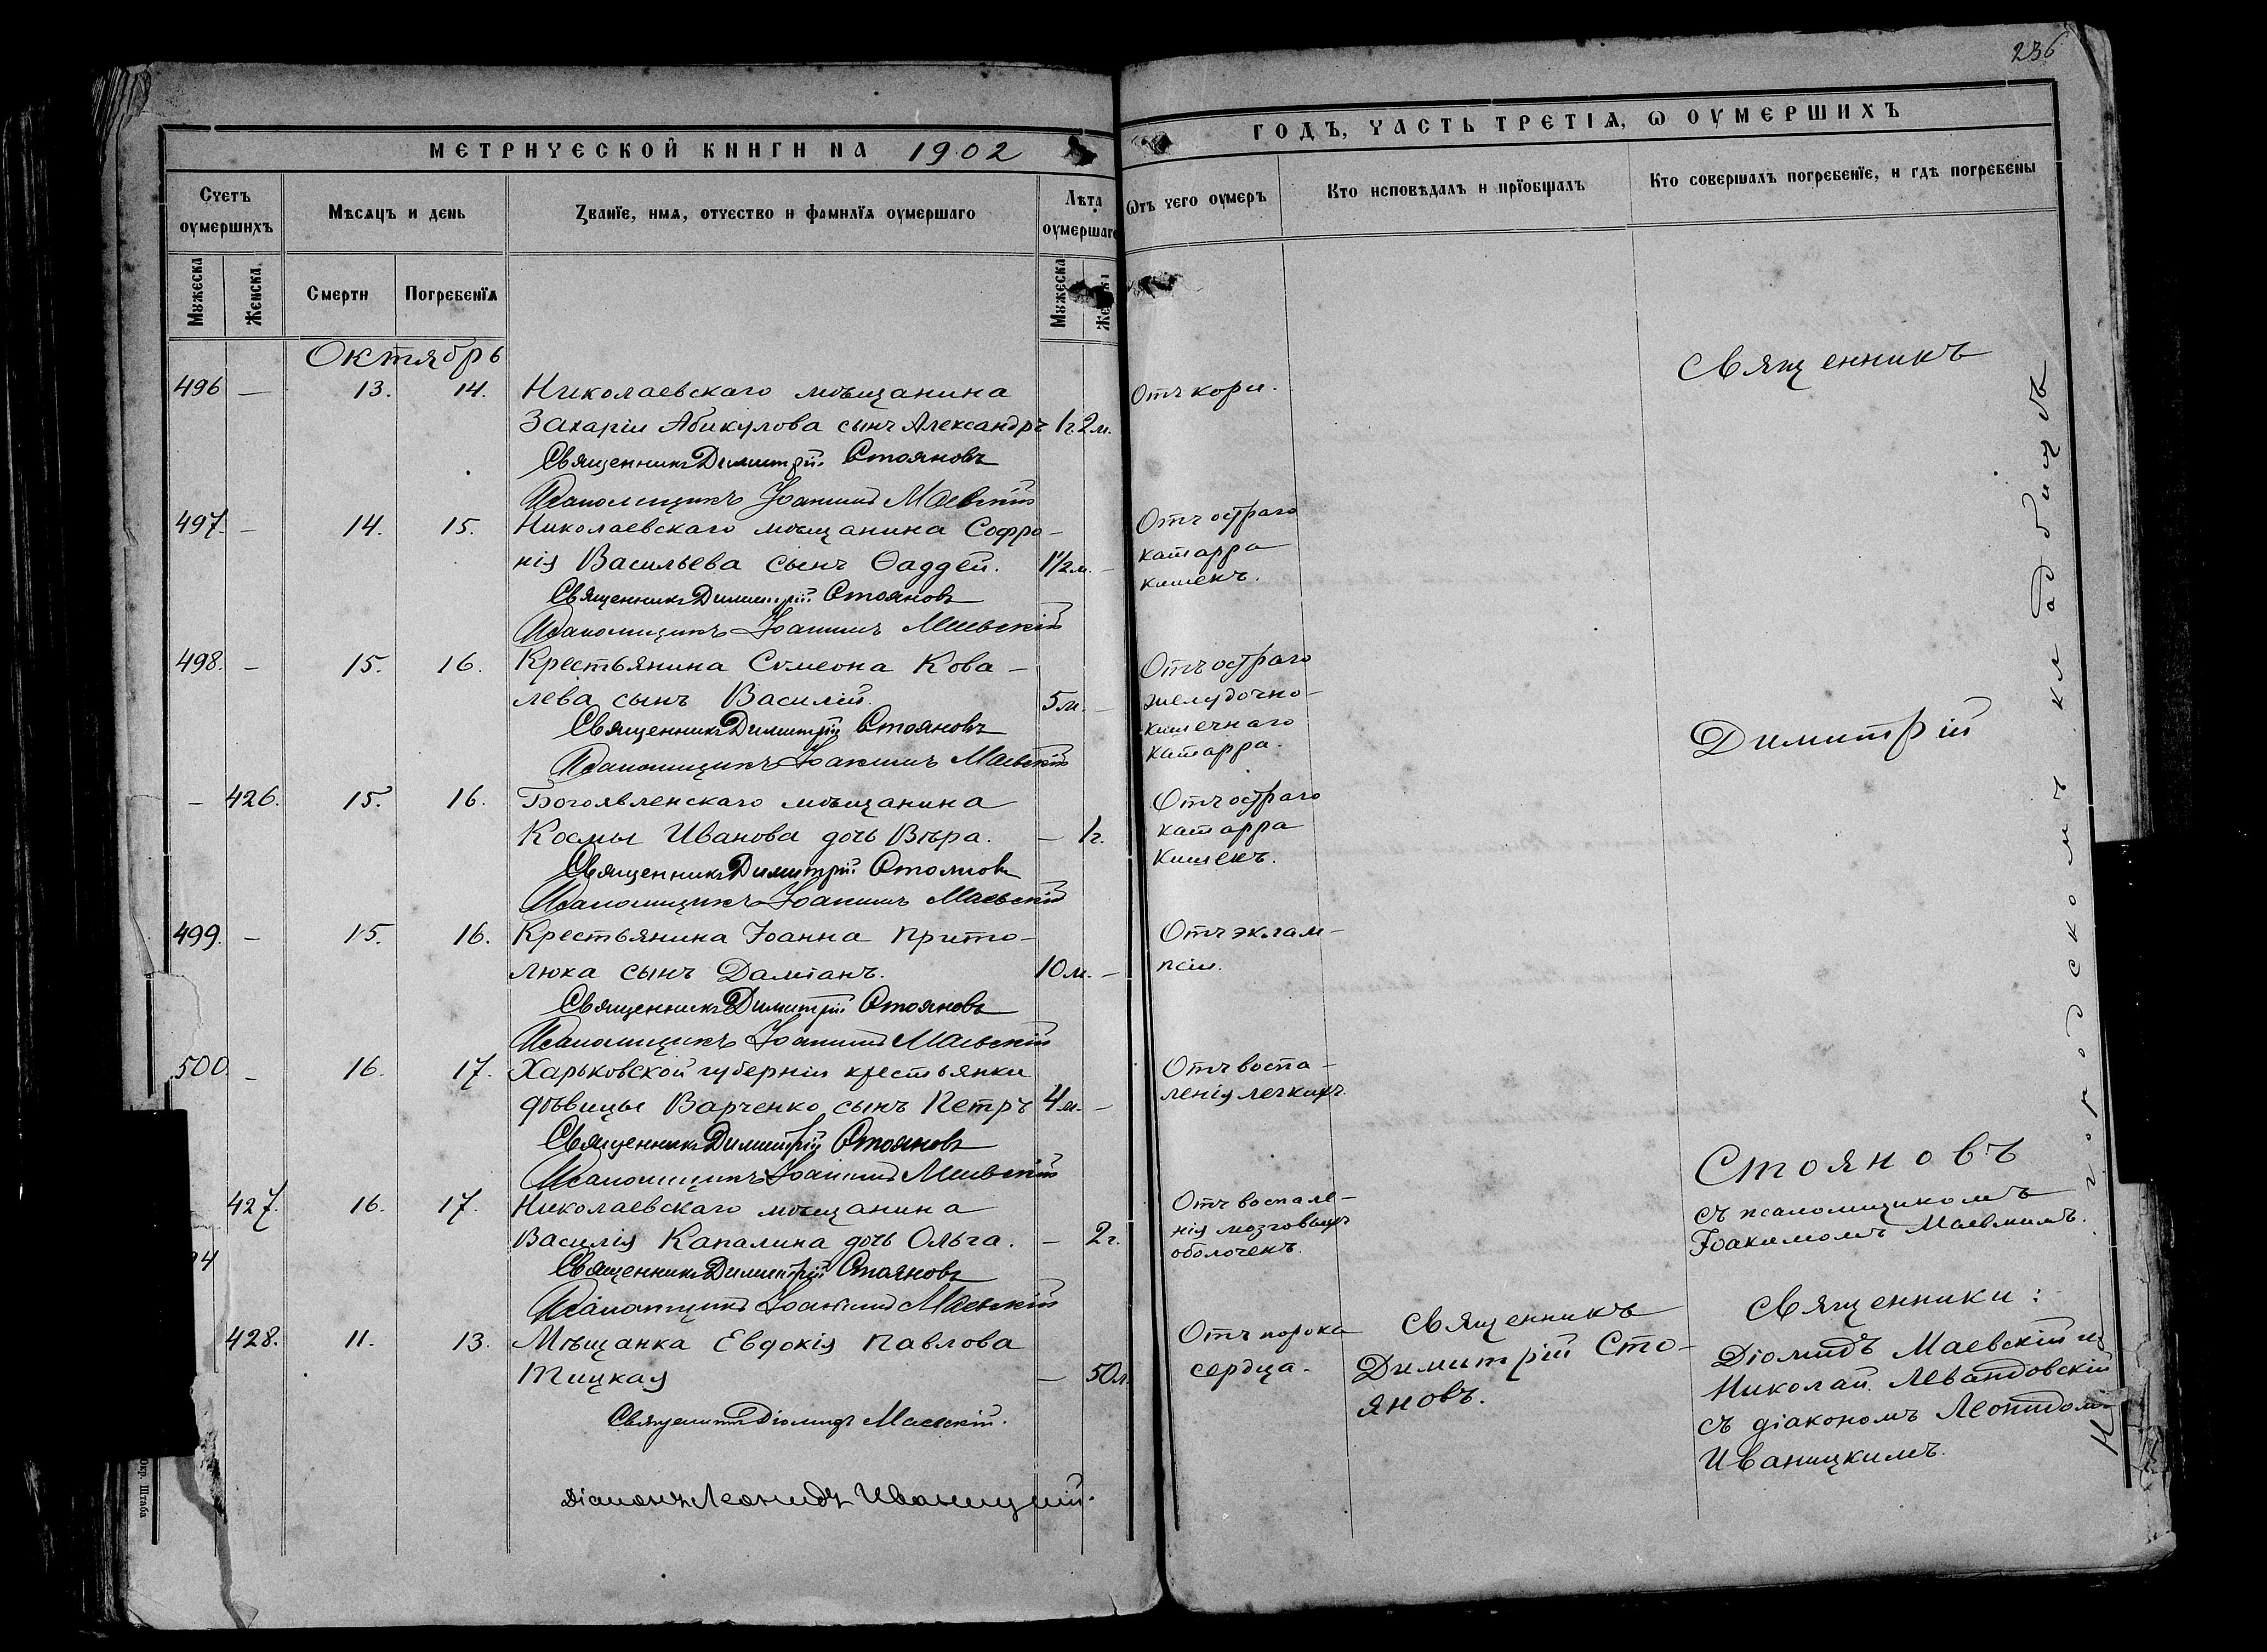 236
МЕТРИЧЕСКОЙ КНИГИ НА 1902
ГОДЪ, ЧАСТЬ ТРЕТІЯ, Ѡ ОУМЕРШИХЪ
Счетъ оумершихъ
Мѣсяцъ и день
Званїе, имя, отчество и фамилїя оумершаго
Лѣта оумершаго
Ѿтъ чего оумеръ
Кто исповѣдалъ и прїобщалъ
Кто совершалъ погребенїе, и гдѣ погребены
Мужеска
Женска
Смерти
Погребенїя
Мужеска
Октябрь
496 — 13. 14. Николаевскаго мѣщанина
Захаріи Абикулова сынъ Александръ 1г.2м.
Отъ кори.
Священникъ Димитрій Стояновъ
Псаломщикъ Іоакимъ Маевскій
497. — 14. 15. Николаевскаго мѣщанина Софро-
нія Васильева сынъ Ѳаддей. 1½м. —
Отъ остраго
катарра
кишекъ.
Священникъ Димитрій Стояновъ
Псаломщикъ Іоакимъ Маевскій
498. — 15. 16. Крестьянина Сѵмеона Кова-
лева сынъ Василій. 5м. —
Отъ остраго
желудочно-
кишечнаго
катарра.
Священникъ Димитрій Стояновъ
Псаломщикъ Іоакимъ Маевскій
— 426. 15. 16. Богоявленскаго мѣщанина
Космы Иванова дочь Вѣра. — 1г.
Отъ остраго
катарра
кишекъ.
Священникъ Димитрій Стояновъ
Псаломщикъ Іоакимъ Маевскій
499. — 15. 16. Крестьянина Іоанна Прито-
люка сынъ Даміанъ. 10м. —
Отъ эклам-
псіи.
Священникъ Димитрій Стояновъ
Псаломщикъ Іоакимъ Маевскій
500. — 16. 17. Харьковской губерніи крестьянки
дѣвицы Варченко сынъ Петръ 4м. —
Отъ воспа-
ленія легкихъ.
Священникъ Димитрій Стояновъ
Псаломщикъ Іоакимъ Маевскій
427. 16. 17. Николаевскаго мѣщанина
Василія Капалина дочь Ольга. — 2г.
Отъ воспале-
нія мозговыхъ
оболочекъ.
Священникъ Димитрій Стояновъ
Псаломщикъ Іоакимъ Маевскій
Священникъ
Димитрій
Стояновъ
съ псаломщикомъ
Іоакимомъ Маевскимъ.
428. 11. 13. Мѣщанка Евдокія Павлова
Тицкая — 50л.
Отъ порока
сердца.
Священникъ
Димитрій Сто-
яновъ.
Священники:
Діомидъ Маевскій и
Николай Левандовскій
съ діакономъ Леонидомъ
Иваницкимъ.
Священникъ Діомидъ Маевскій.
Діаконъ Леонидъ Иваницкій.
городскомъ кладбищѣ
Окр. Штаба